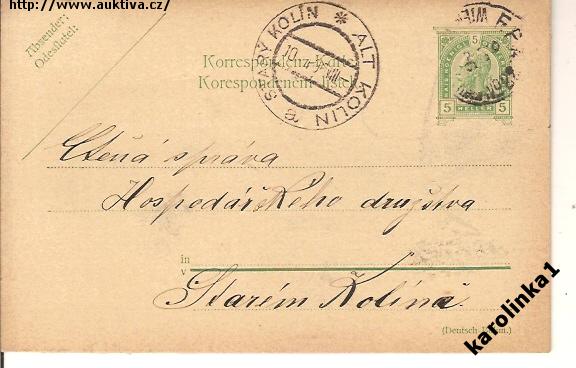 http://www.auktiva.cz/
Absender:
Odesílatel:
STARÝ KOLÍN * ALT KOLIN
Korrespondenz-Karte
Korespondenční lístek
5 5
HELLER
Ctěná správa
Hospodářského družstva
in
v
Starém Kolíně
(Deutsch-Böhm.)
karolinka1